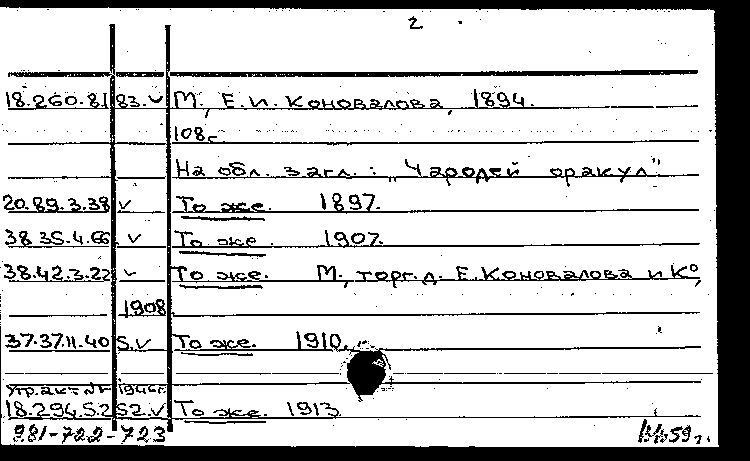 2
18.260.81 83.v М., Е.И. Коновалова, 1894.
108с.
На обл. загл.: „Чародей оракул"
20.89.3.38 v То же. 1897.
38.35.4.66. v То же. 1907.
38.42.3.22 v То же. М., торг. д. Е. Коновалова и К°,
1908
37.37.11.40 5.v То же. 1910.
Утр. акт № 1946г.
18.294.5.2 52.v То же. 1913
981-722-723